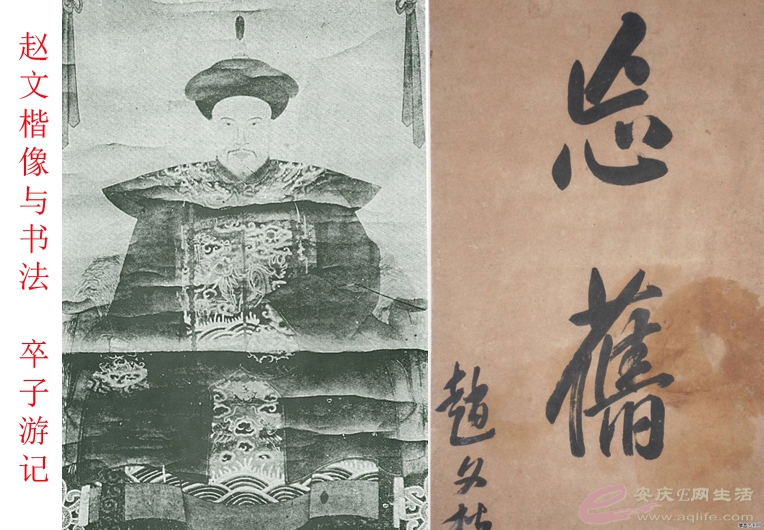 赵文楷像与书法 卒子游记
念舊
趙文
安庆E网生活
www.aqlife.com